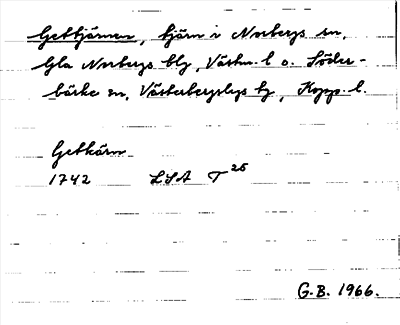 Getstjärnen, tjärn i Norbergs sn,
Gla Norbergs blg, Västm. l o. Söder-
bärke sn, Västerbergslags fg, Kopp. l.
Getkärn
1742 LSA T 26
G.B. 1966.